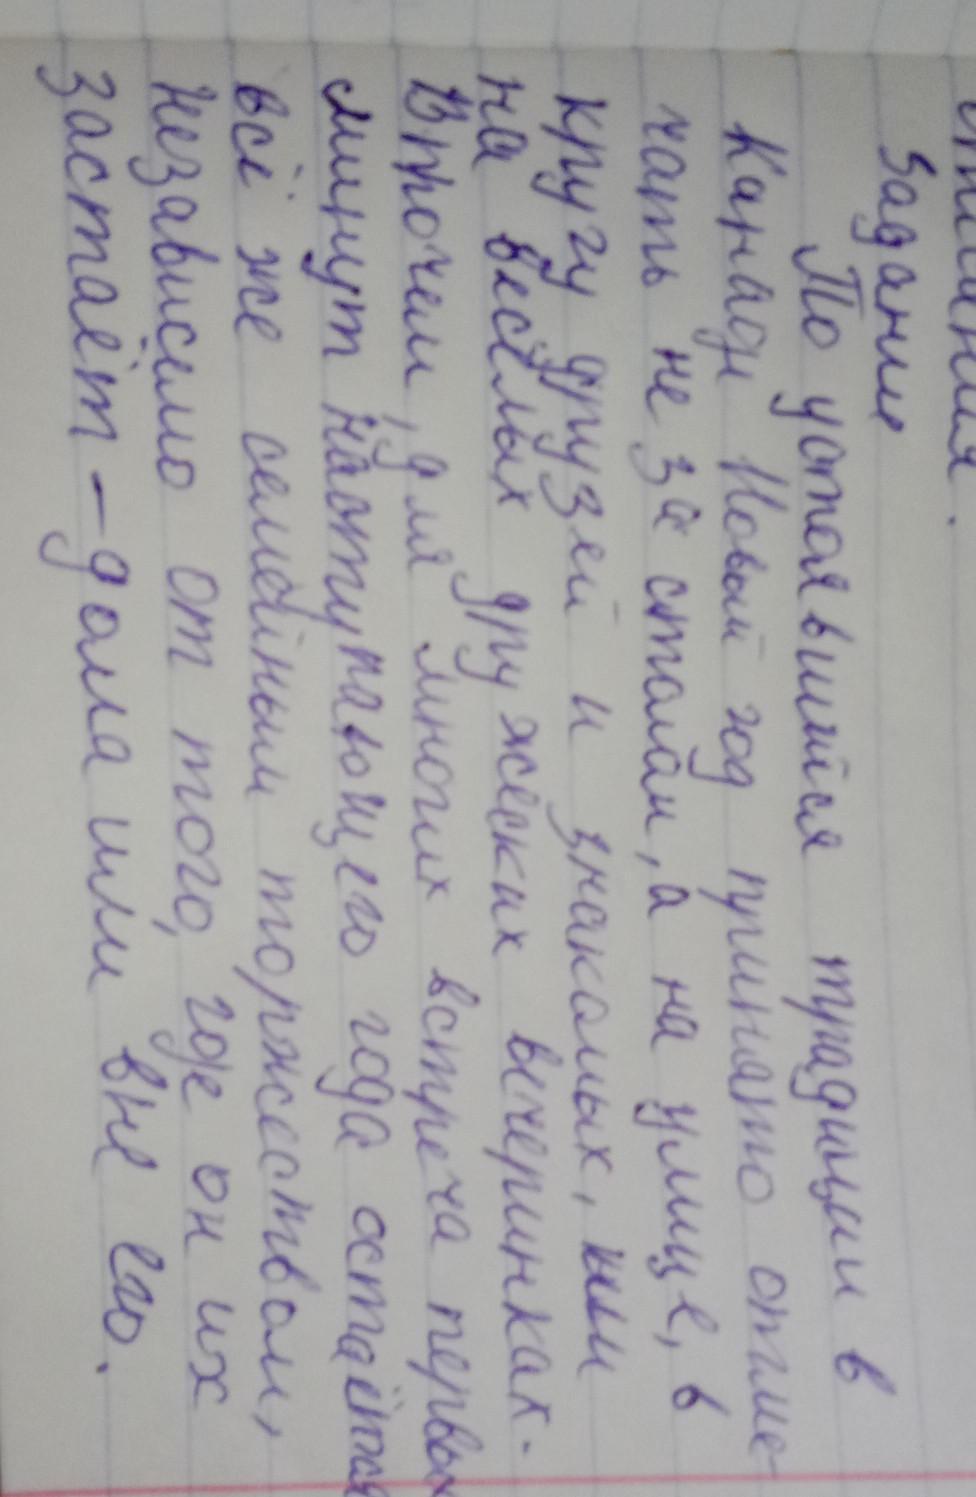 Задание
По устоявшийся традиции в
Канаде Новый год принято отме-
чать не за столом, а на улице, в
кругу друзей и знакомых, или
на весёлых дружеских вечеринках.
Впрочем, для многих встреча первых
минут наступающего года остаётся
всё же семейным торжеством,
независимо от того, где он их
застаёт - дома или вне его.